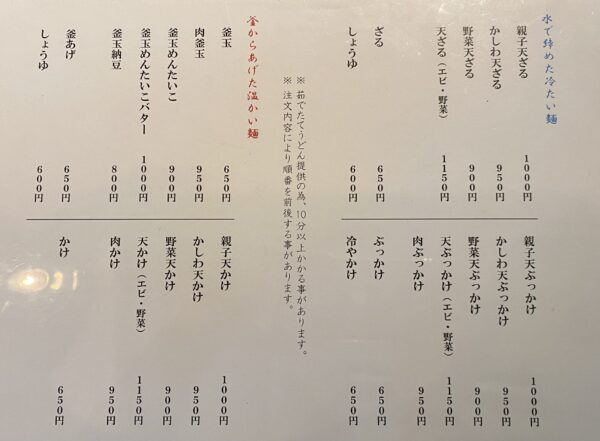 水で締めた冷たい麺
親子天ざる 1000円
かしわ天ざる 950円
野菜天ざる 900円
天ざる(エビ・野菜) 1150円
ざる 650円
しょうゆ 600円
親子天ぶっかけ 1000円
かしわ天ぶっかけ 950円
野菜天ぶっかけ 900円
天ぶっかけ(エビ・野菜) 1150円
肉ぶっかけ 950円
ぶっかけ 650円
冷やかけ 650円
※ 茹でたてうどん提供の為、10分以上かかる事があります。
※ 注文内容により順番を前後する事があります。
釜からあげた温かい麺
釜玉 650円
肉釜玉 950円
釜玉めんたいこ 900円
釜玉めんたいこバター 1000円
釜玉納豆 800円
釜あげ 650円
しょうゆ 600円
親子天かけ 1000円
かしわ天かけ 950円
野菜天かけ 900円
天かけ(エビ・野菜) 1150円
肉かけ 950円
かけ 650円